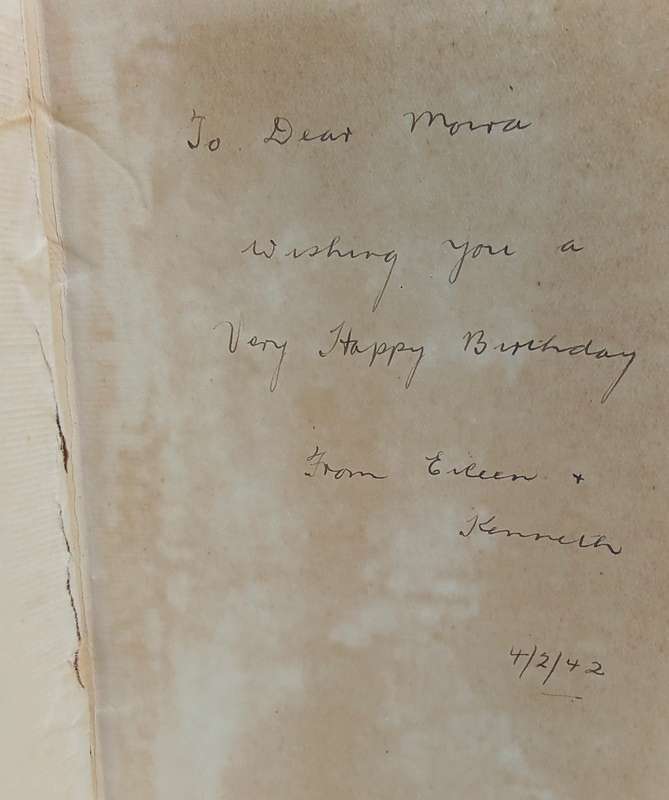 To Dear Moira
Wishing you a
Very Happy Birthday
From Eileen +
Kenneth
4/2/42